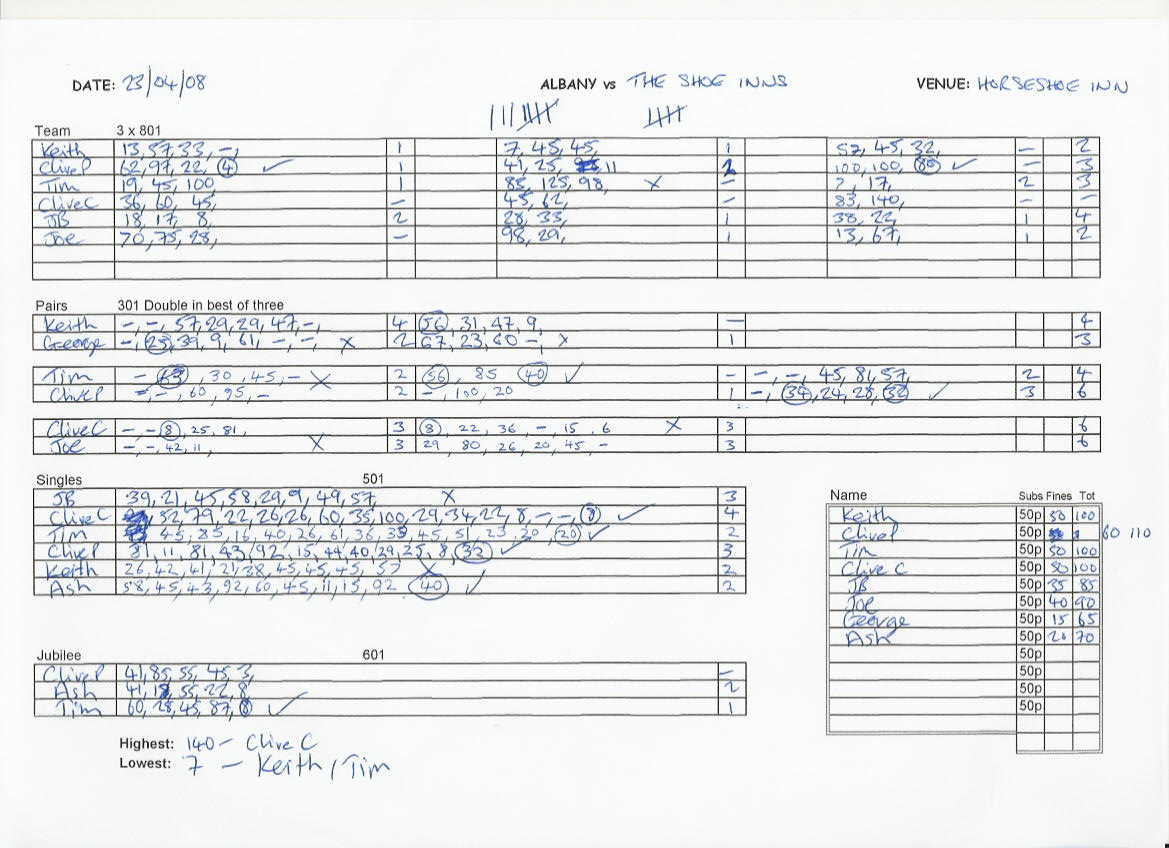 DATE: 23/04/08 ALBANY vs THE SHOE INNS VENUE: HORSESHOE INN
Team 3 x 801
Keith 13, 57, 33, -, 1 7, 45, 45, 1 57, 45, 32, - 2
CliveP 62, 97, 22, 4 ✓ 1 41, 25, 11 2 100, 100, 85 ✓ - 3
Tim 19, 45, 100 1 85, 125, 98, X - 7, 17, 2 3
CliveC 36, 60, 45, - 45, 62, - 83, 140, - -
JB 18, 17, 8, 2 28, 33, 1 38, 22, 1 4
Joe 70, 75, 28, - 98, 29, 1 13, 67, 1 2
Pairs 301 Double in best of three
Keith -, -, 57, 29, 29, 47, -, 4 56, 31, 47, 9, - 4
George -, 25, 39, 9, 61, -, -, X 2 67, 23, 60 -, X 1 3
Tim - 63, 30, 45, - X 2 56, 85 40 ✓ - -, -, 45, 81, 57, 2 4
CliveP -, -, 60, 95, - 2 -, 100, 20 1 -, 34, 24, 28, 32 ✓ 3 6
CliveC -, - 8, 25, 81, 3 8, 22, 36, -, 15, 6 X 3 6
Joe -, -, 42, 11, X 3 29, 80, 26, 20, 45, - 3 6
Singles 501
JB 39, 21, 45, 58, 29, 9, 49, 57, X 3
CliveC 52, 79, 22, 26, 26, 60, 35, 100, 29, 34, 22, 8, -, -, 8 ✓ 4
Tim 45, 85, 16, 40, 26, 61, 36, 35, 45, 51, 23, 20, 20 ✓ 2
CliveP 31, 11, 81, 43, 92, 15, 44, 40, 29, 25, 8, 32 ✓ 3
Keith 26, 42, 41, 21, 38, 45, 45, 45, 57 X 2
Ash 58, 45, 43, 92, 60, 45, 11, 15, 92 40 ✓ 2
Name Subs Fines Tot
Keith 50p 50 100
CliveP 50p 60 110
Tim 50p 50 100
Clive C 50p 50 100
JB 50p 35 85
Joe 50p 40 90
George 50p 15 65
Ash 50p 20 70
50p
50p
50p
50p
Jubilee 601
CliveP 41, 85, 55, 45, 3, -
Ash 41, 18, 55, 22, 8, 2
Tim 60, 28, 45, 87, 8 ✓ 1
Highest: 140 - Clive C
Lowest: 7 - Keith / Tim